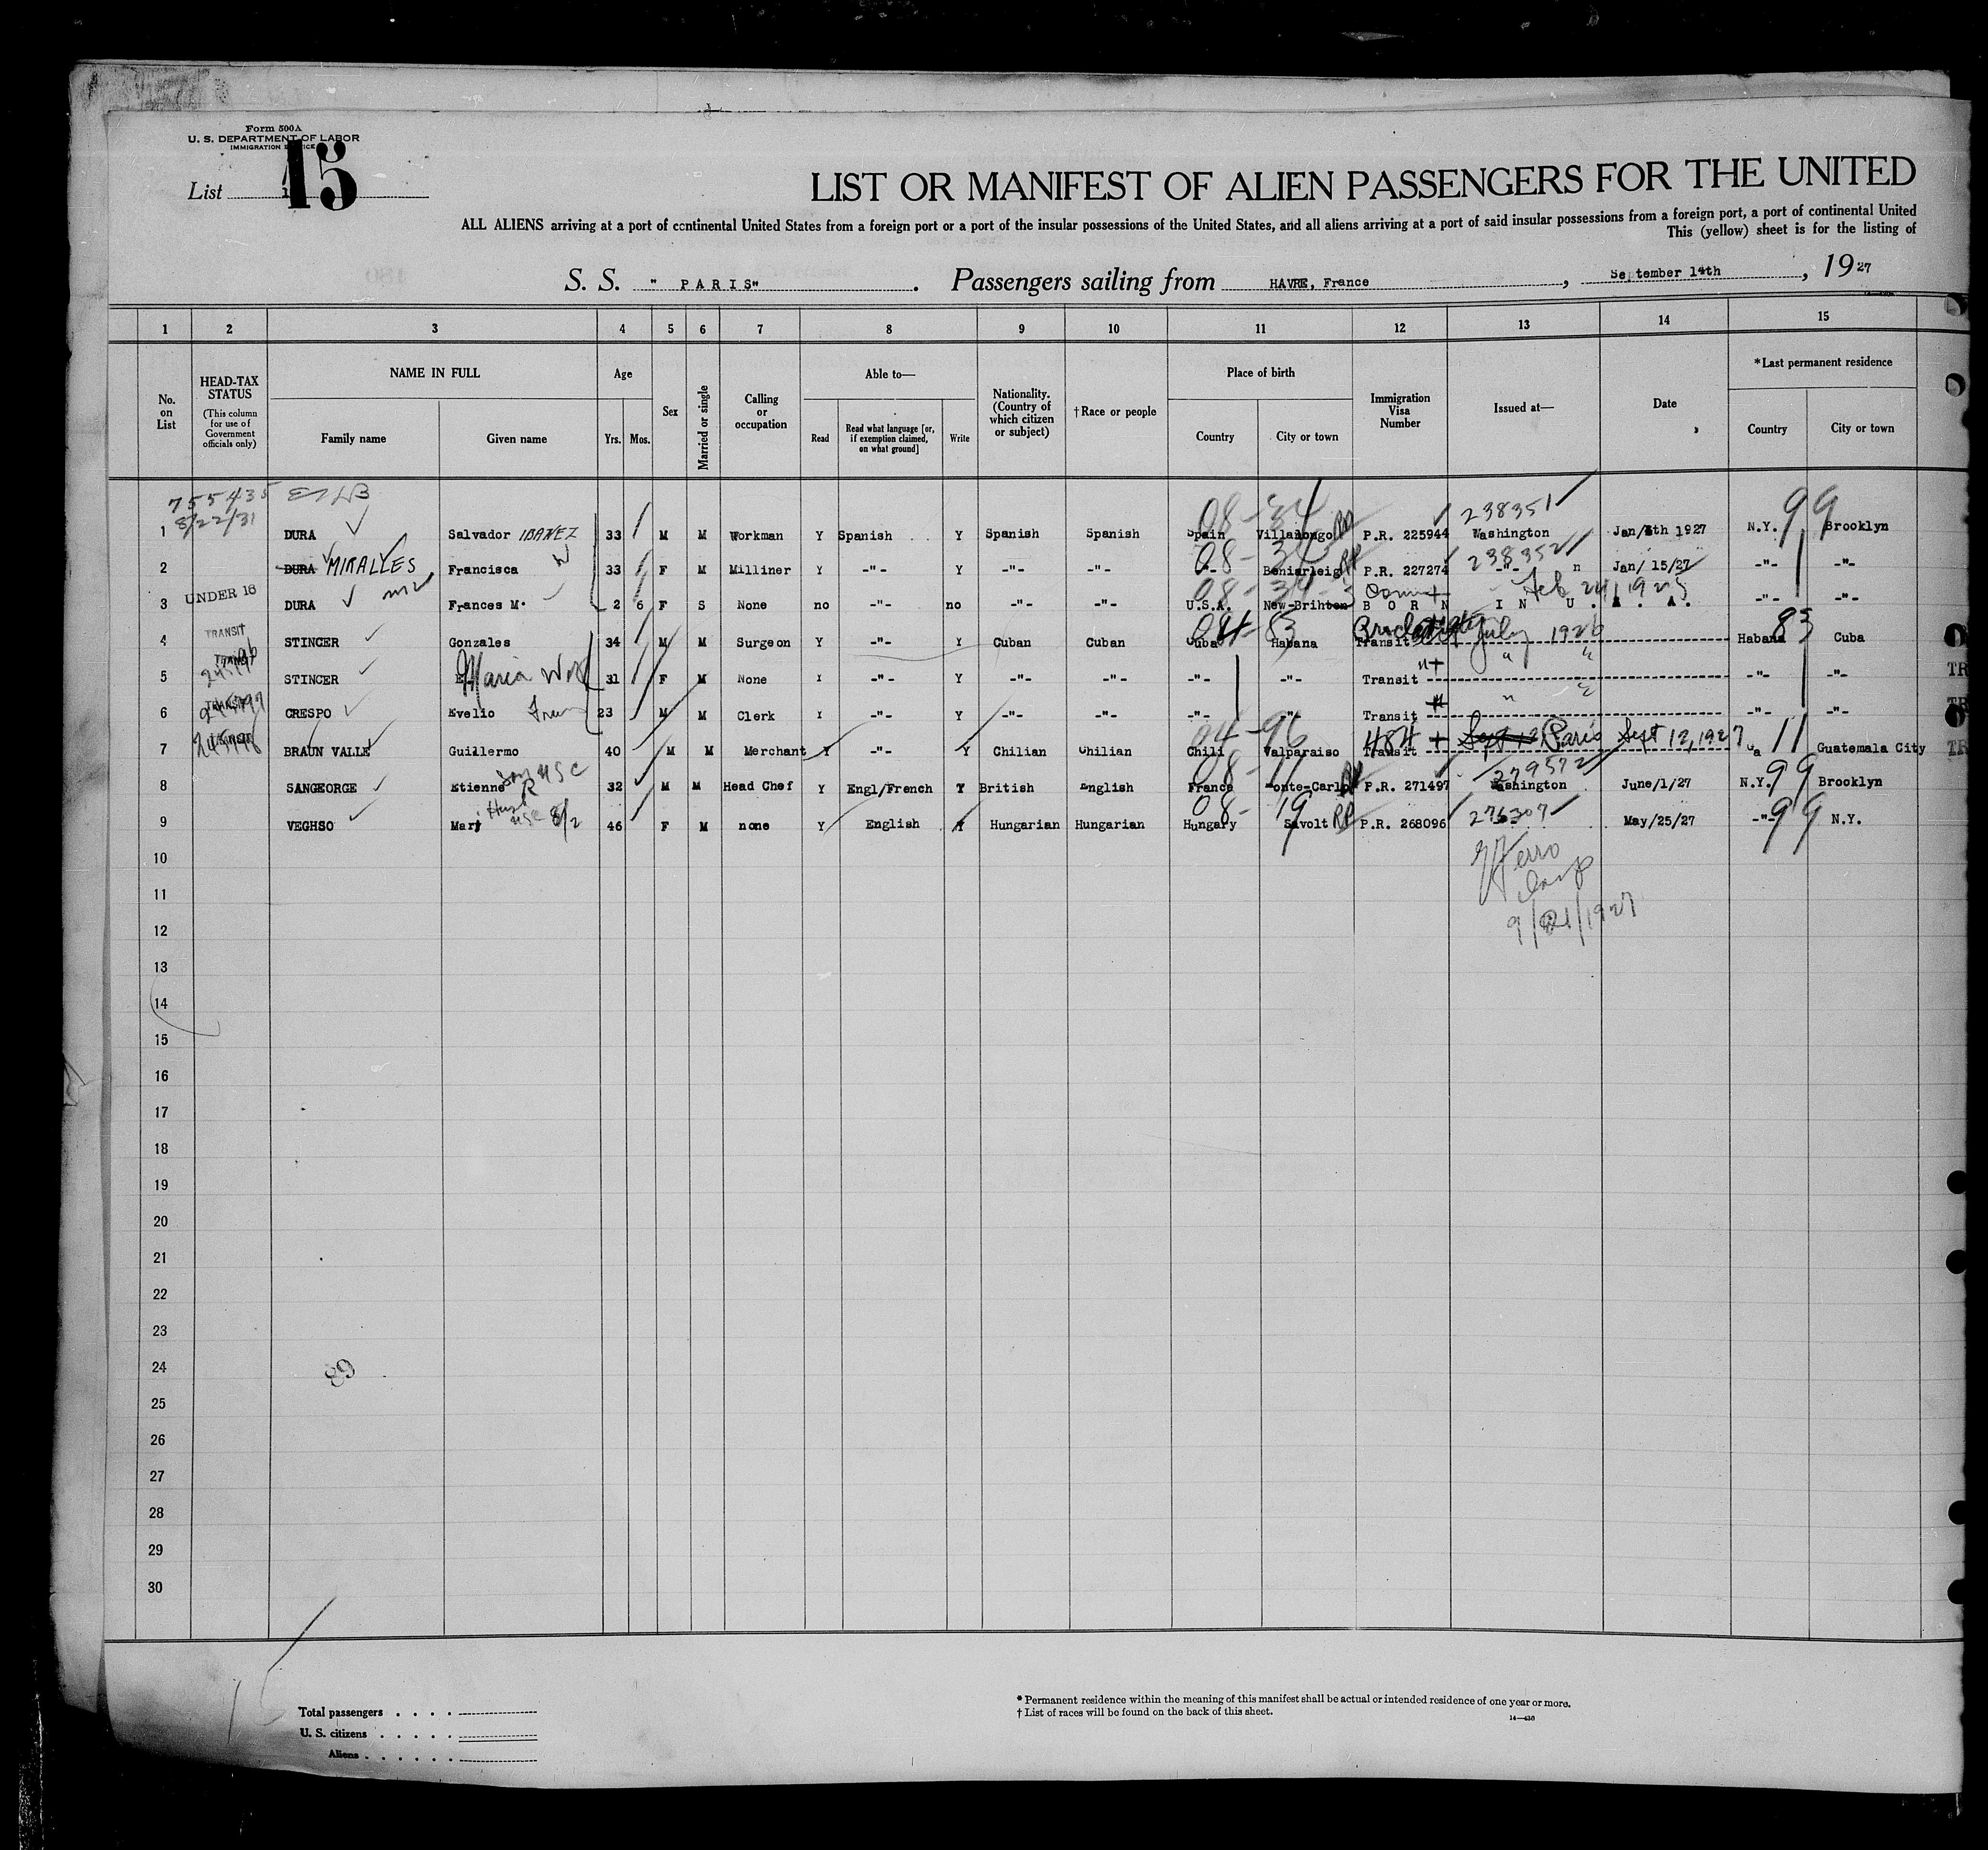 Form 500A
U. S. DEPARTMENT OF LABOR
IMMIGRATION
List 15
LIST OR MANIFEST OF ALIEN PASSENGERS FOR THE UNITED
ALL ALIENS arriving at a port of continental United States from a foreign port or a port of the insular possessions of the United States, and all aliens arriving at a port of said insular possessions from a foreign port, a port of continental United
This (yellow) sheet is for the listing of
S. S. " P A R I S" . Passengers sailing from HAVRE, France , September 14th , 1927
1 2 3 4 5 6 7 8 9 10 11 12 13 14 15
No. on List
HEAD-TAX STATUS (This column for use of Government officials only)
NAME IN FULL
Family name Given name
Age
Yrs. Mos.
Sex
Married or single
Calling or occupation
Able to—
Read
Read what language [or, if exemption claimed, on what ground]
Write
Nationality. (Country of which citizen or subject)
†Race or people
Place of birth
Country City or town
Immigration Visa Number
Issued at—
Date
*Last permanent residence
Country City or town
755435
8/22/31
238351
1 DURA Salvador IBANEZ 33 M M Workman Y Spanish Y Spanish Spanish Spain Villalongo P.R. 225944 Washington Jan/ 8th 1927 N.Y. 99 Brooklyn
08-34
238352
2 DURA MIRALLES Francisca W 33 F M Milliner Y -"- Y -"- -"- -"- Beniarleig P.R. 227274 -"- Jan/ 15/27 -"- -"-
08-34
UNDER 16
3 DURA Frances M. 2 6 F S None no -"- no -"- -"- U.S.A. New-Brihton B O R N I N U. S. A. -"- -"-
Feb 24, 1925
TRANSIT
4 STINCER Gonzales 34 M M Surgeon Y -"- Y Cuban Cuban Cuba Habana Transit July 1926 Habana 83 Cuba
TRANSIT
5 STINCER Maria 31 F M None Y -"- Y -"- -"- -"- -"- Transit " " -"- -"-
TRANSIT
6 CRESPO Evelio 23 M M Clerk Y -"- Y -"- -"- -"- -"- Transit " -"- -"-
04-96
7 BRAUN VALLE Guillermo 40 M M Merchant Y -"- Y Chilian Chilian Chili Valparaiso Transit 484 Paris Sept 12, 1927 11 Guatemala City
08-11
279572
8 SANGEORGE Etienne R 32 M M Head Chef Y Engl/French Y British English France Monte-Carlo P.R. 271497 Washington June/1/27 N.Y. 99 Brooklyn
08-19
9 VEGHSO Mary 46 F M none Y English Y Hungarian Hungarian Hungary Savolt P.R. 268096 276307 May/25/27 -"- 99 N.Y.
10
11
12
9/21/1927
13
14
15
16
17
18
19
20
21
22
23
24
89
25
26
27
28
29
30
Total passengers . . . .
U. S. citizens . . . . .
Aliens . . . . . .
* Permanent residence within the meaning of this manifest shall be actual or intended residence of one year or more.
† List of races will be found on the back of this sheet.
14—430